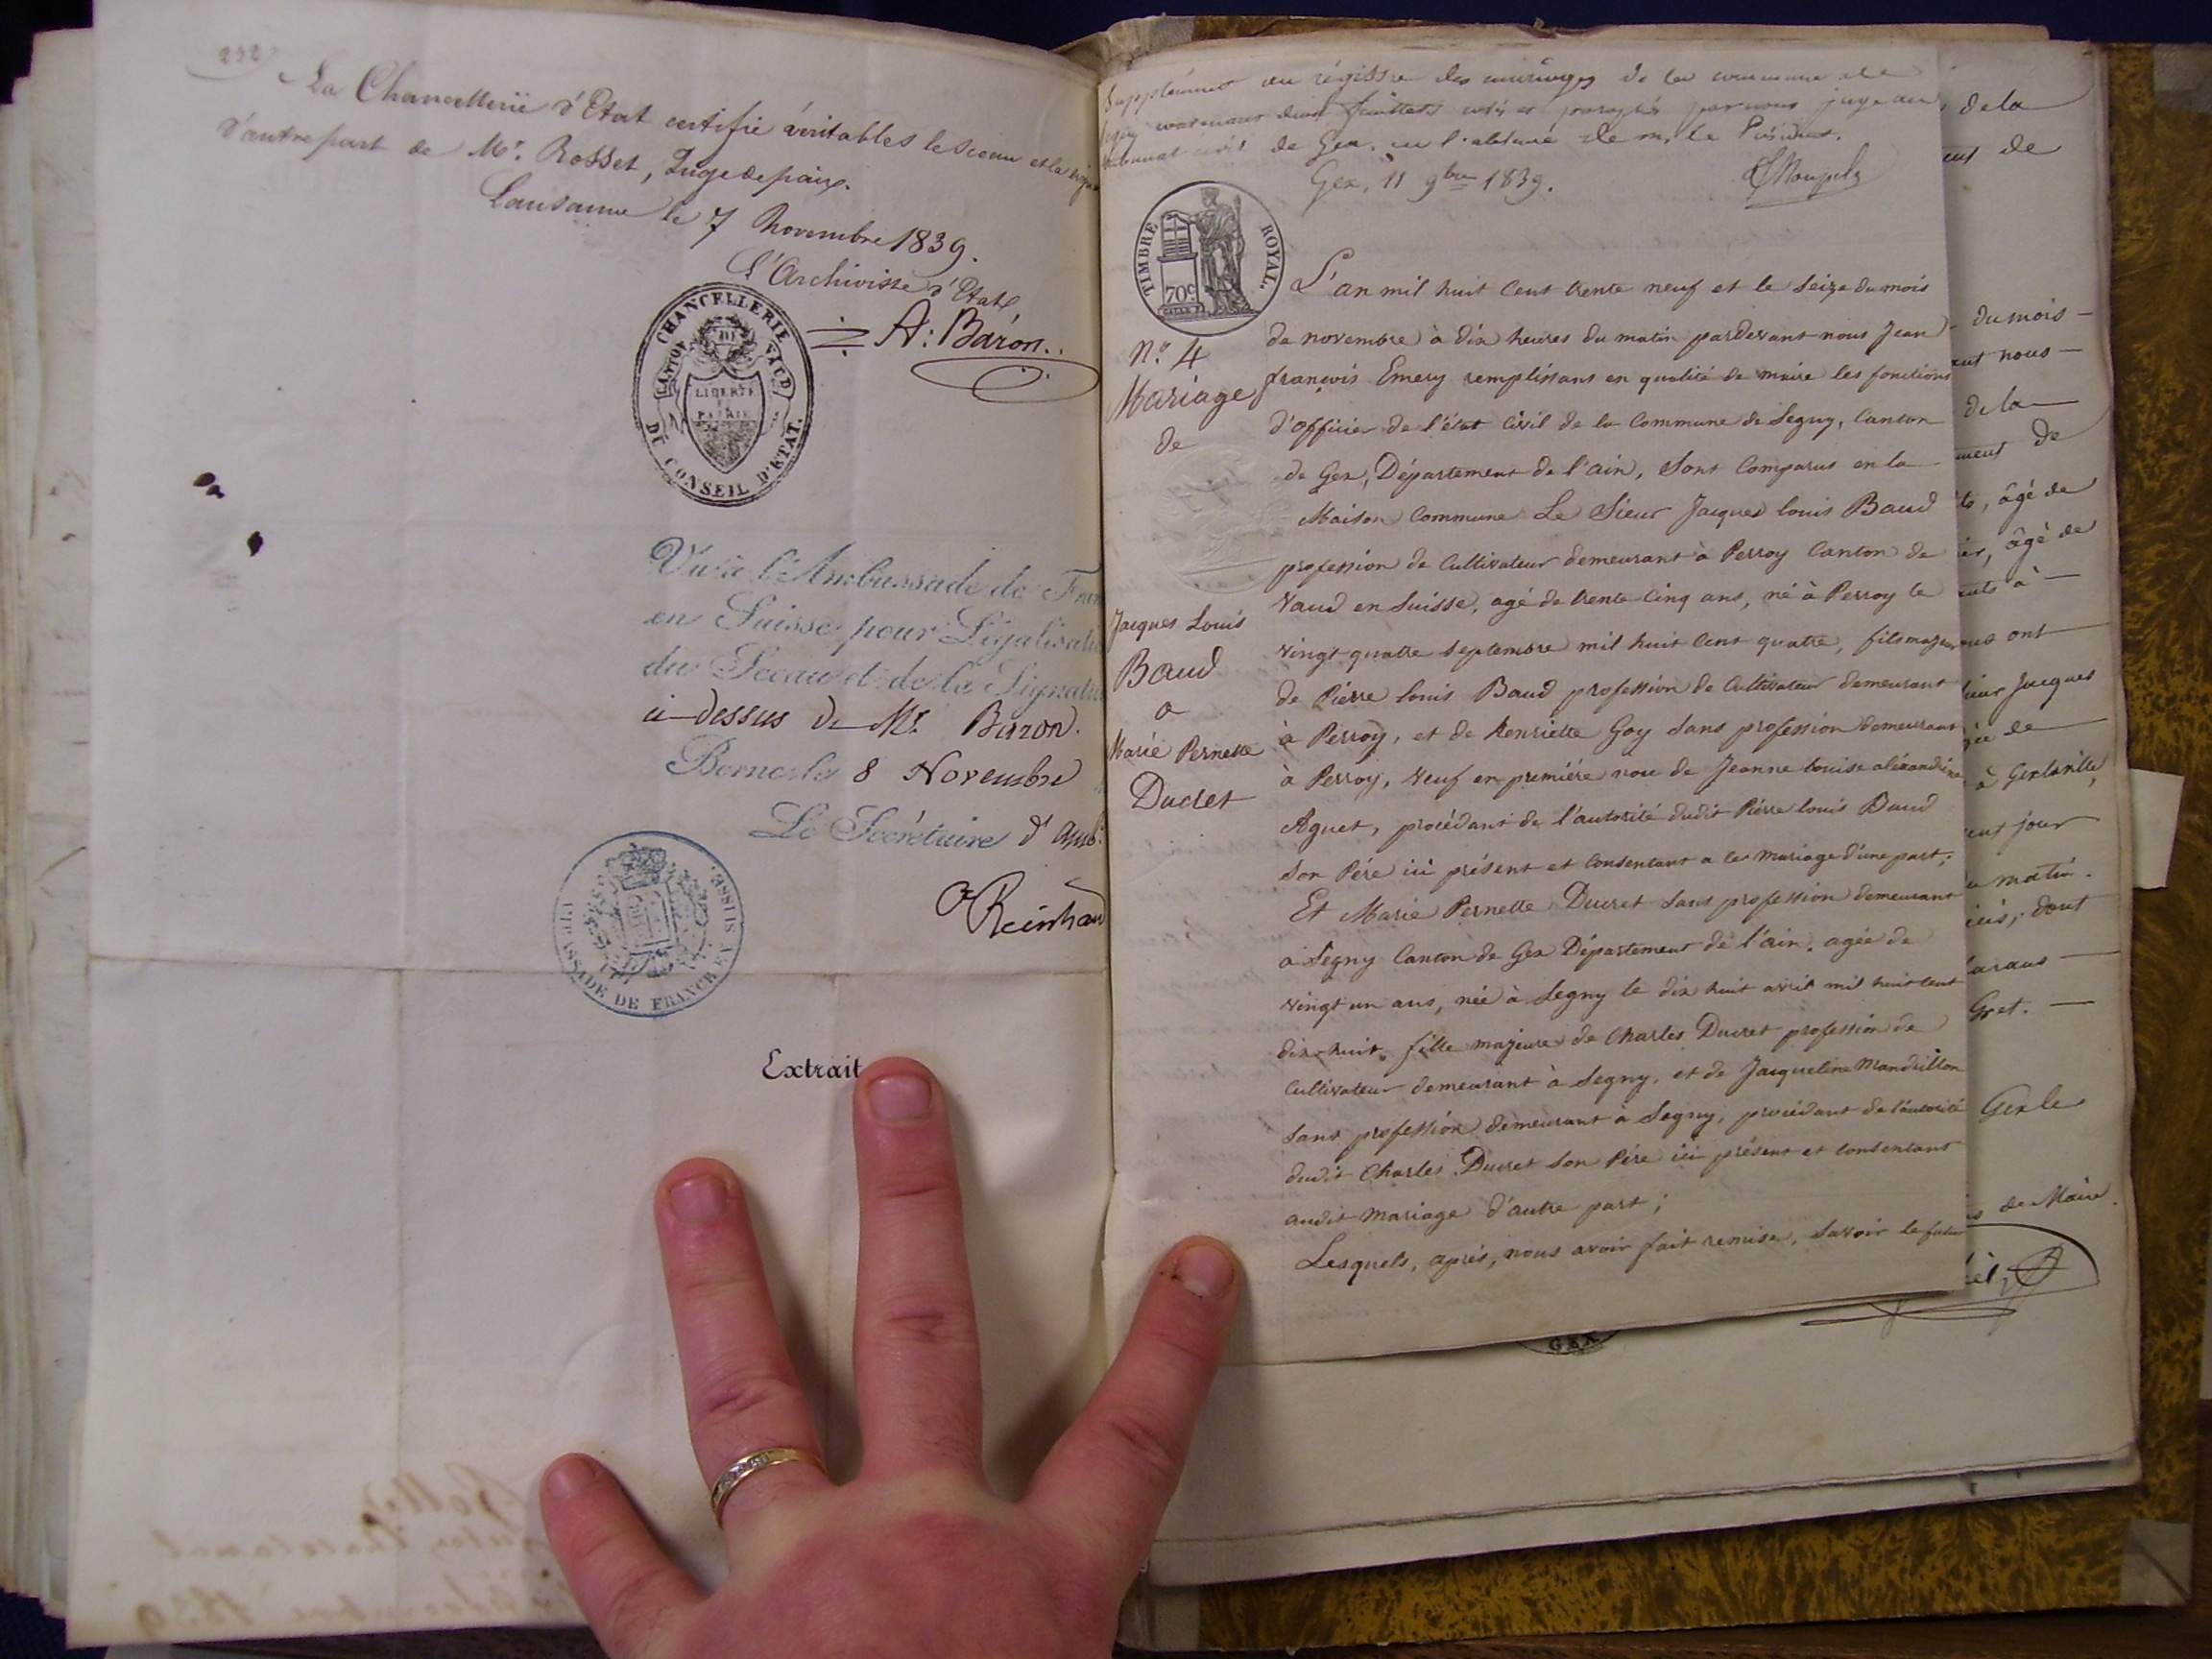 232
La Chancellerie d'Etat certifie véritables le sceau et la
d'autre part de Mr. Rosset, Juge de paix.
Lausanne le 7 Novembre 1839.
L'Archiviste d'Etat,
A. Baron.
CHANCELLERIE
CANTON DE VAUD
LIBERTÉ
ET
PATRIE
DU CONSEIL D'ETAT.
Vu à l'Ambassade de
en Suisse pour
du Sceau et de la
ci-dessus de Mr. Baron.
Berne le 8 Novembre
Le Secrétaire d'amb.
AMBASSADE DE FRANCE EN SUISSE
Extrait
Supplément au régistre des mariages de la commune de
contenant deux feuillets cotés et paraphés par nous juge au
tribunal civil de Gex, en l'absence de m. le Président.
Gex, 11 9bre 1839.
TIMBRE ROYAL.
70c
No. 4
Mariage
de
Jacques Louis
Baud
a
Marie Pernette
Ducret
L'an mil huit cent trente neuf et le seize du mois
de novembre à dix heures du matin pardevant nous Jean
françois Emery remplissant en qualité de maire les fonctions
d'officier de l'état Civil de la Commune de Segny, Canton
de Gex, Département de l'ain, sont Comparus en la
Maison Commune Le Sieur Jacques louis Baud
profession de Cultivateur demeurant à Perroy Canton de
Vaud en Suisse, agé de trente cinq ans, né à Perroy le
vingt quatre septembre mil huit cent quatre, fils majeur
de Pierre louis Baud profession de Cultivateur demeurant
à Perroy, et de henriette Goy sans profession demeurant
à Perroy, veuf en première noce de Jeanne louise alexandrine
Aguet, procédant de l'autorité dudit Pierre louis Baud
son Père ici présent et consentant a ce mariage d'une part;
Et Marie Pernette Ducret sans profession demeurant
à Segny Canton de Gex Département de l'ain, agée de
vingt un ans, née à Segny le dix huit avril mil huit cent
dix-huit, fille majeure de Charles Ducret profession de
Cultivateur demeurant à Segny, et de Jacqueline Mandrillon
sans profession demeurant à Segny, procédant de l'autorité
dudit Charles Ducret son Père ici présent et consentant
audit mariage d'autre part;
Lesquels, après, nous avoir fait remise, savoir le futur
de la
de
du mois
nous
de la
de
âgé de
âgé de
à
ont
Jacques
de
à
jour
matin.
dont
Gret.
Gex le
de Maire.
GEX